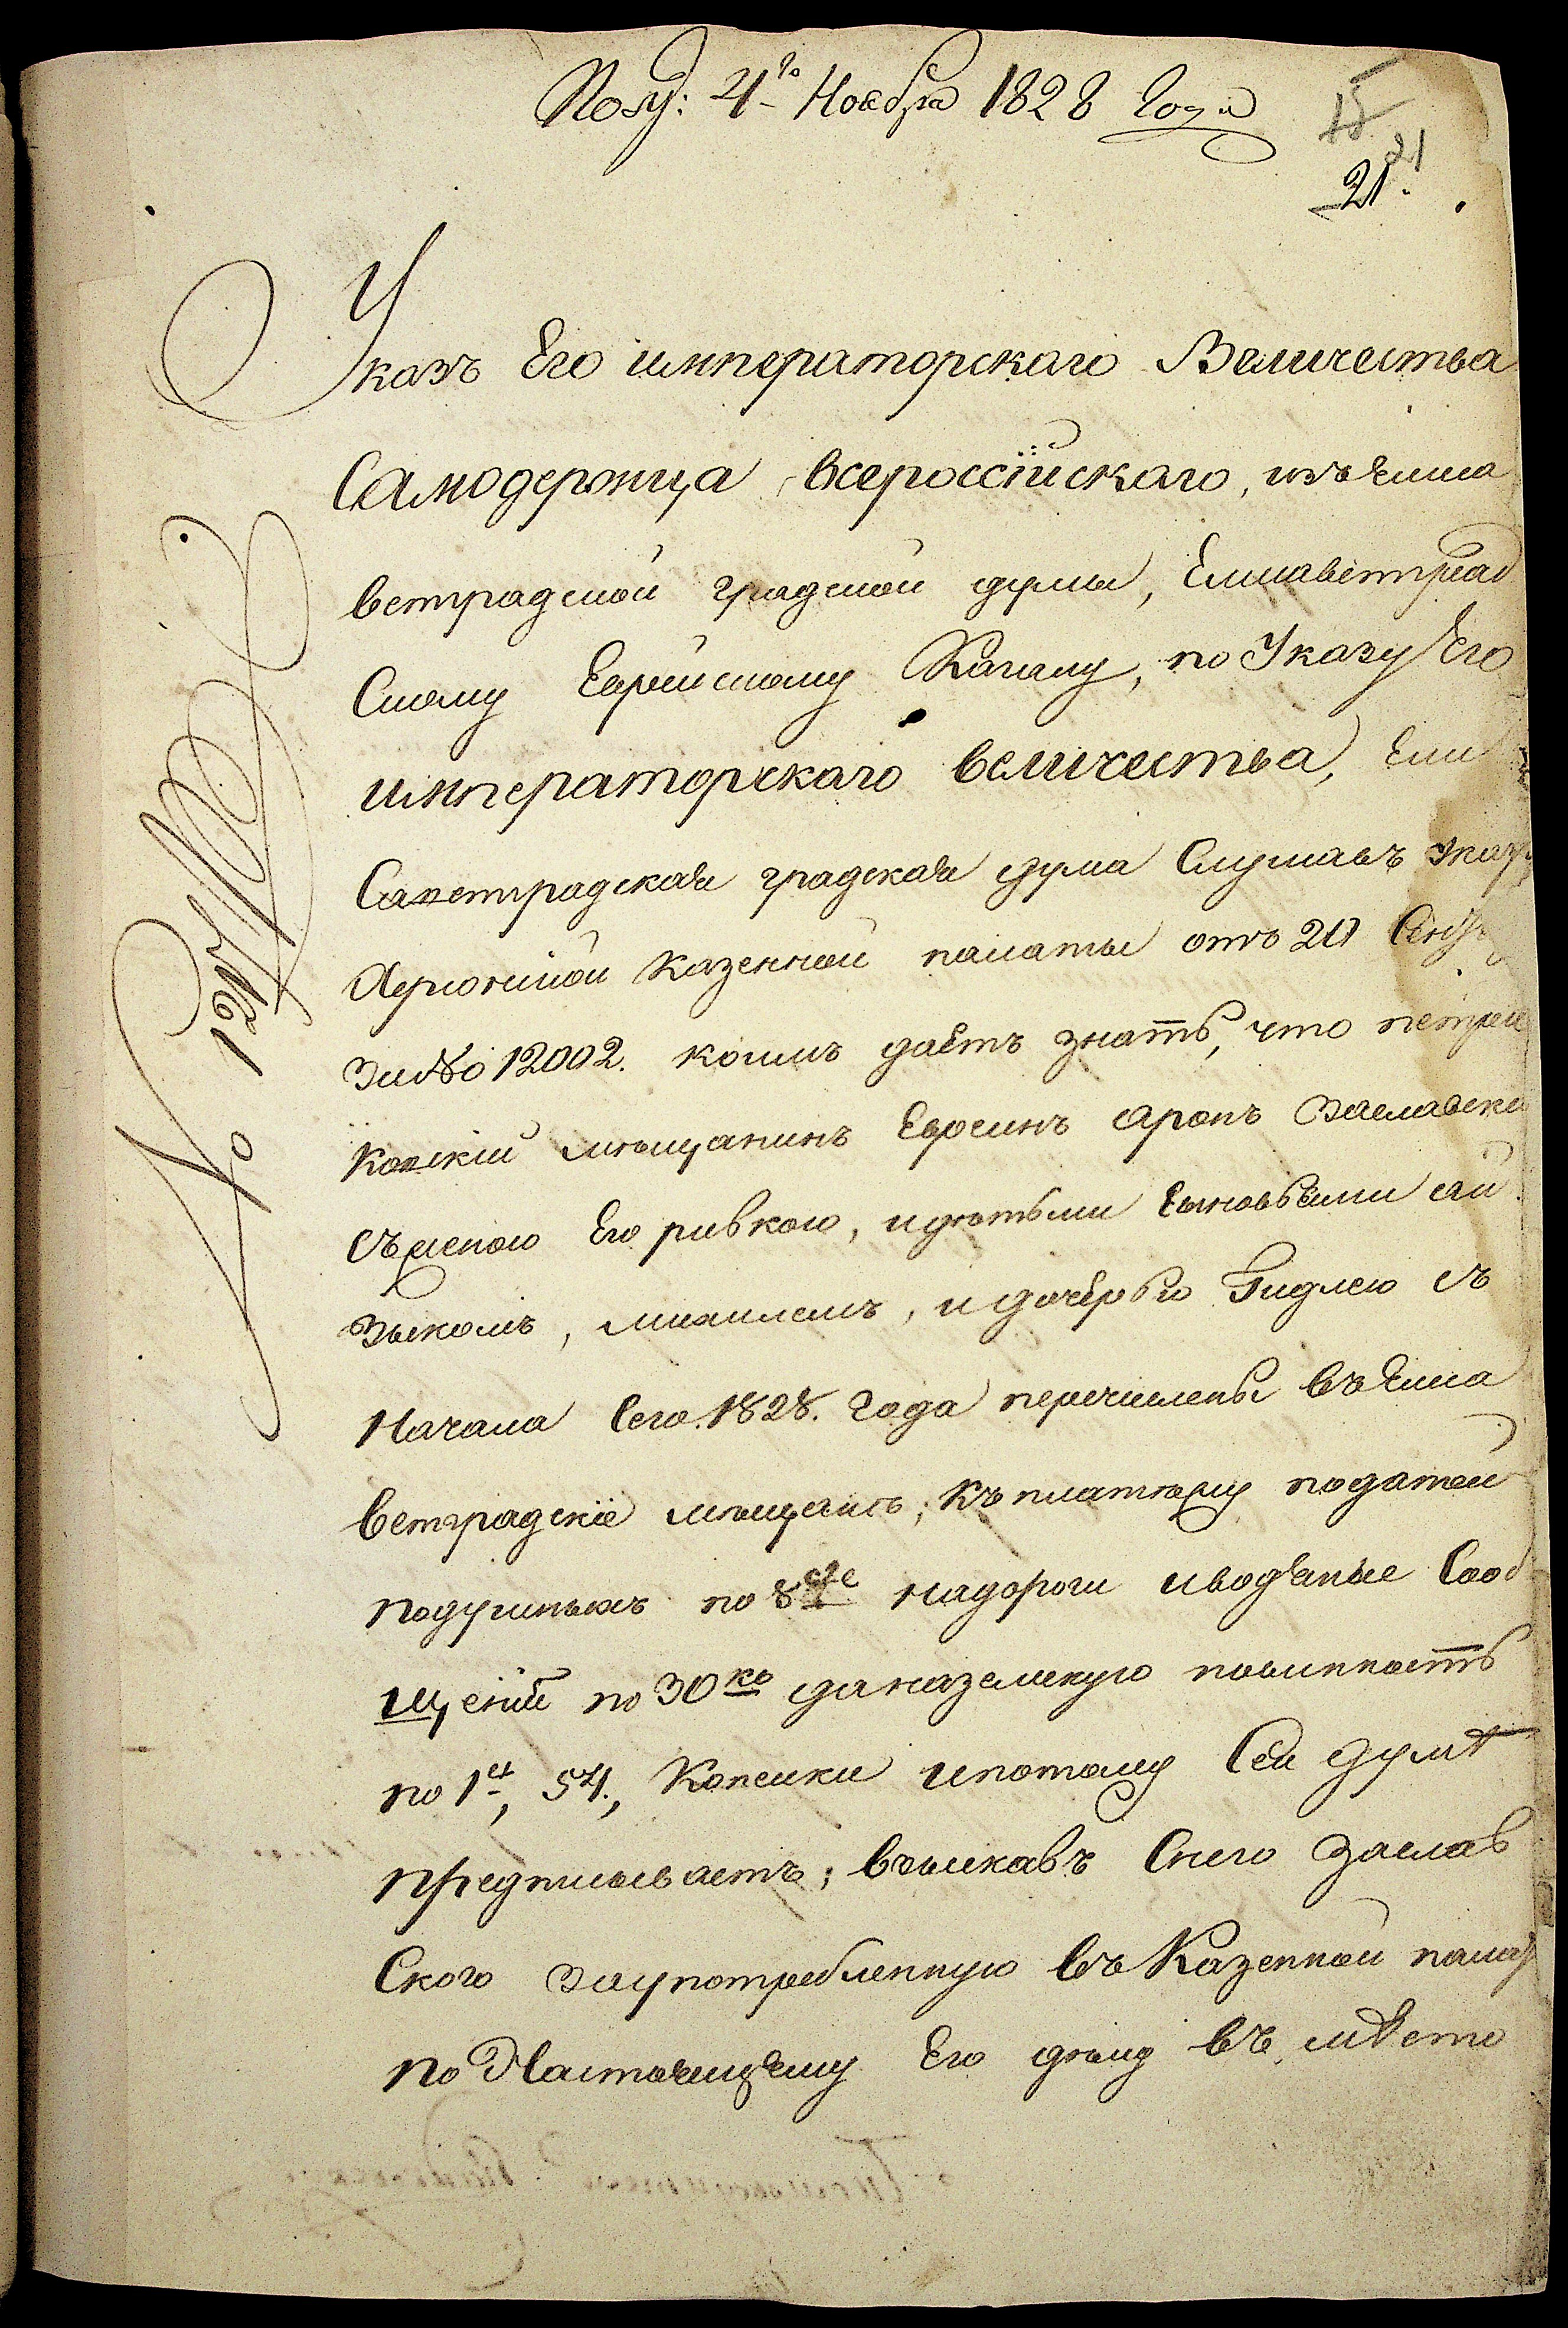 Полу: 4го Ноября 1828 Года
15
21
21.
Указъ Его императорскаго Величества
Самодержца всероссійскаго, изъ Елиса
ветградской градской думы, Елисаветград
Скому Еврейскому Кагалу, по Указу Его
императорскаго величества, Ели
Саветградская градская дума Слушавъ указ
Херсонской Казенной палаты отъ 20
за № 12002. коимъ даетъ знать, что петри
Ковскій мѣщанинъ Евреинъ аронъ Заславски
съ женою Его ривкою, и дѣтьми Сыновьями ай
зыкомъ, михилемъ, и дочерью Гидлею съ
Начала Сего 1828. Года перечислены въ Елиса
ветградскіе мѣщане, къ платежу податей
подушныхъ по 8 надороги и водяные Сооб
щеній по 30 ко да на земскую повинность
по 1, 54, Копейки и потому Сей думѣ
предписываетъ; взыскавъ Снего Заслав
Ского за употребленную въ Казенной палат
по Настоящему Его дѣлу въ мѣсто
№ 1244